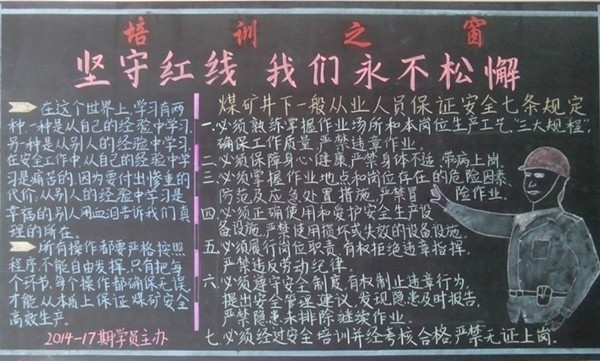 培训之窗
坚守红线 我们永不松懈
在这个世界上,学习有两
种,一种是从自己的经验中学习,
另一种是从别人的经验中学习。
在安全工作中从自己的经验中学
习是痛苦的,因为要付出惨重的
代价,从别人的经验中学习是
幸福的,别人用血泪告诉我们真
理的所在。
所有操作都要严格按照
程序,不能自由发挥,只有把每
个环节,每个操作都确保无误,
才能从本质上保证煤矿安全
高效生产。
2014-17期学员主办
煤矿井下一般从业人员保证安全七条规定
一、必须熟练掌握作业场所和本岗位生产工艺,"三大规程",
确保工作质量,严禁违章作业。
二、必须保障身心健康,严禁身体不适、带病上岗。
三、必须掌握作业地点和岗位存在的危险因素、
防范及应急处置措施,严禁冒险作业。
四、必须正确使用和爱护安全生产设
备设施,严禁使用损坏或失效的设备设施。
五、必须履行岗位职责,有权拒绝违章指挥,
严禁违反劳动纪律。
六、必须遵守安全制度,有权制止违章行为,
提出安全管理建议,发现隐患及时报告,
严禁隐患未排除继续作业。
七、必须经过安全培训并经考核合格,严禁无证上岗。